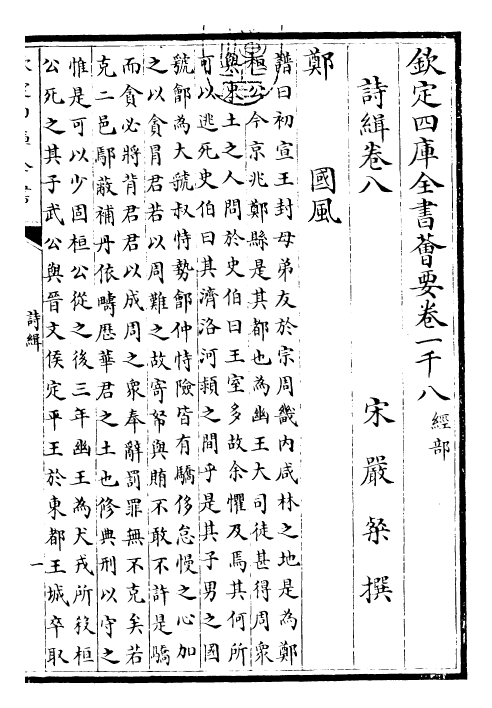 欽定四庫全書薈要卷一千八 經部
詩緝卷八 宋 嚴粲 撰
鄭 國風
譜曰初宣王封母弟友於宗周畿内咸林之地是為鄭
桓公今京兆鄭縣是其都也為幽王大司徒甚得周衆
與東土之人問於史伯曰王室多故余懼及焉其何所
可以逃死史伯曰其濟洛河潁之間乎是其子男之國
虢鄶為大虢叔恃勢鄶仲恃險皆有驕侈怠慢之心加
之以貪冒君若以周難之故寄帑與賄不敢不許是驕
而貪必將背君君以成周之衆奉辭罰罪無不克矣若
克二邑鄢蔽補丹依疇歴華君之土也修典刑以守之
惟是可以少固桓公從之後三年幽王為犬戎所殺桓
公死之其子武公與晉文侯定平王於東都王城卒取
詩緝
一